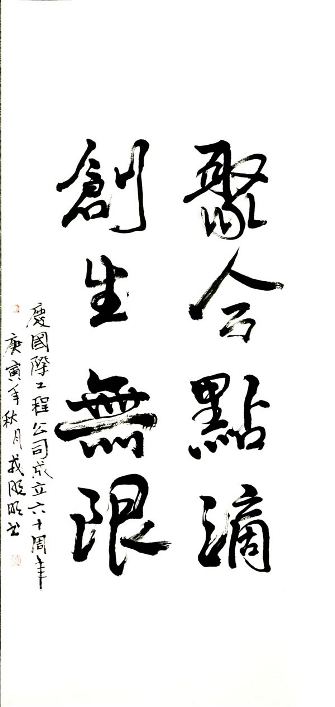 聚合點滴
創生無限
慶國際工程公司成立六十周年
庚寅年秋月